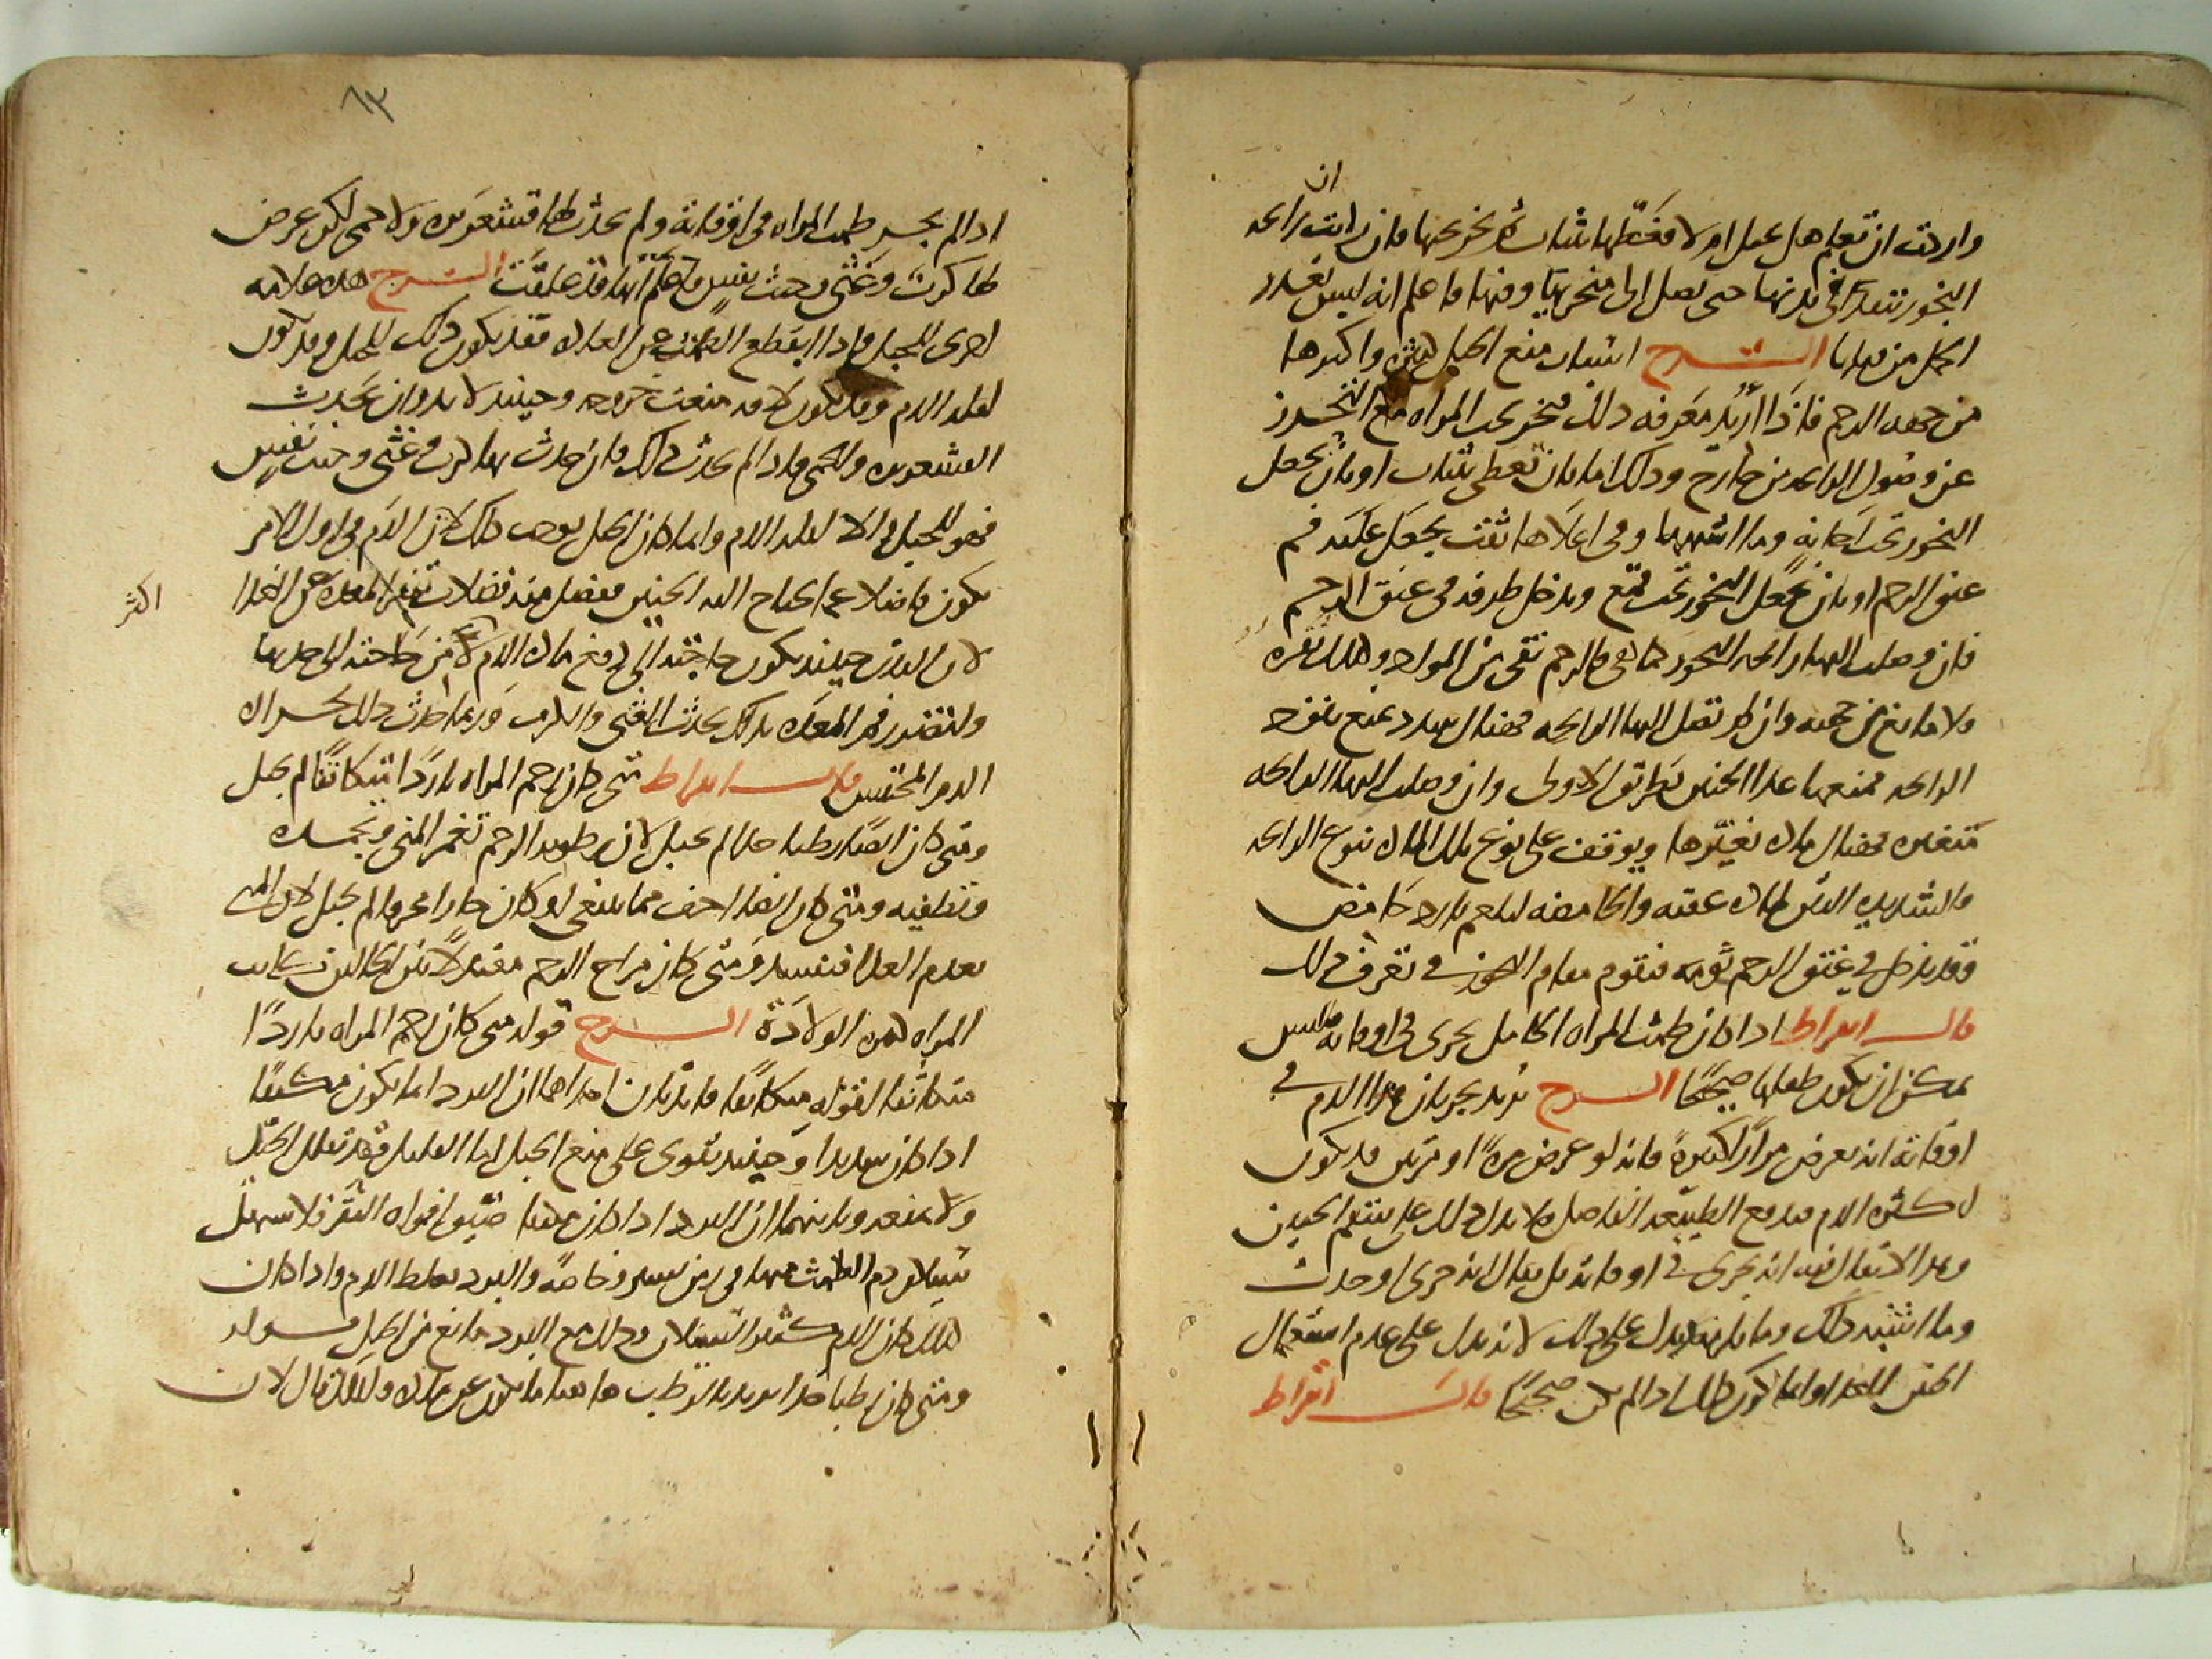 ان
واردت ان تعلم هل تحبل ام لا فغطها بثياب ثم بخر تحتها فان رايت رائحة
البخور تنفذ في بدنها حتى تصل الى منخريها وفيها فاعلم انه ليس تعذر
الحبل من قبلها الشرح اسباب منع الحبل كثيرة واكثرها
من جهة الرحم فاذا اريد معرفة ذلك فبخر تحت المراة مع التحرز
عن وصول الرائحة من خارج وذلك اما بان تغطى بثياب او بان يجعل
البخور تحت اجانة وما اشبهها وفي اعلاها ثقب يجعل عليه فم
عنق الرحم او بان يجعل البخور تحت قمع ويدخل طرفه في عنق الرحم
فان وصلت اليها رائحة البخور كما هي فالرحم نقي من المواد
ولا مانع من جهته وان لم تصل اليها الرائحة فهناك سدد تمنع نفوذ
الرائحة فمنعها غذا الجنين بطريق الاولى وان وصلت اليها الرائحة
متغيرة فهناك مادة تغيرها ويوقف على نوع تلك المادة بنوع الرائحة
فالشديدة النتن لمادة عفنة والحامضة لبلغم بارد حامض
وقد يدخل في عنق الرحم ثومة فتقوم مقام البخور في تعرف ذلك
قال ابقراط اذا كان طمث المراة الحامل يجري في اوقاته فليس
يمكن ان يكون طفلها صحيحا الشرح يريد بجريان هذا الدم في
اوقاته انه يعرض مرارا كثيرة فانه لو عرض مرة او مرتين قد يكون
لكثرة الدم فتدفع الطبيعة الفاضل فلا يدل ذلك على سقم الجنين
وهذا لا يقال فيه انه يجري في اوقاته بل يقال انه جرى او حدث
وما اشبه ذلك وما يدل على ذلك لانه يدل على عدم اشتغال
الجنين بالغذا وانما يكون ذلك اذا لم يكن صحيحا قال ابقراط
٦٣
اذا لم يجر طمث المراة في اوقاته ولم يحدث لها قشعريرة ولا حمى لكن عرض
لها كرب وغثى وخبث نفس فاعلم انها قد علقت الشرح هذه علامة
اخرى للحبل فاذا انقطع الطمث عن العادة فقد يكون ذلك للحبل وقد يكون
لقلة الدم وقد يكون لافة منعت خروجه وحينئذ لا بد وان يحدث
القشعريرة والحمى فاذا لم يحدث ذلك فان حدث بها كرب وغثى وخبث نفس
فهو للحبل والا لقلة الدم وانما كان الحبل يوجب ذلك لان الدم في اول الامر
يكون فاضلا عما يحتاج اليه الجنين فيفضل منه فضلات تنفر المعدة عن الغذا
اكثر
لان البدن حينئذ يكون حاجته الى دفع مادة الدم من حاجته الى جذبها
ولتضرر فم المعدة بذلك يحدث الغثى والكرب وربما احدث ذلك بخار
الدم المحتبس قال ابقراط متى كان رحم المراة باردا متكاثفا لم تحبل
ومتى كان ايضا رطبا جدا لم تحبل لان رطوبة الرحم تغمر المنى وتجمده
وتطفيه ومتى كان ايضا اجف مما ينبغي او كان حارا محرقا لم تحبل لان المنى
يعدم الغذا فيفسد ومتى كان مزاج الرحم معتدلا بين الحالتين كانت
المراة كثيرة الولادة الشرح قوله متى كان رحم المراة باردا
متكاثفا لقوله متكاثفا فائدتان احداهما ان البرد انما يكون مكثفا
اذا كان شديدا وحينئذ يقوى على منع الحبل اما القليل فقد يقلل الحبل
ولا يمنعه وثانيهما ان البرد اذا كان مكثفا ضيق افواه النقر فلا يسهل
سيلان دم الطمث منها في زمن يسير وخاصة والبرد يغلظ الدم واذا كان
كذلك كان الدم كثير السيلان وذلك مع البرد مانع من الحبل قوله
ومتى كان رطبا جدا يريد بالرطب هاهنا ما يكون عن مادة ولذلك قال لان